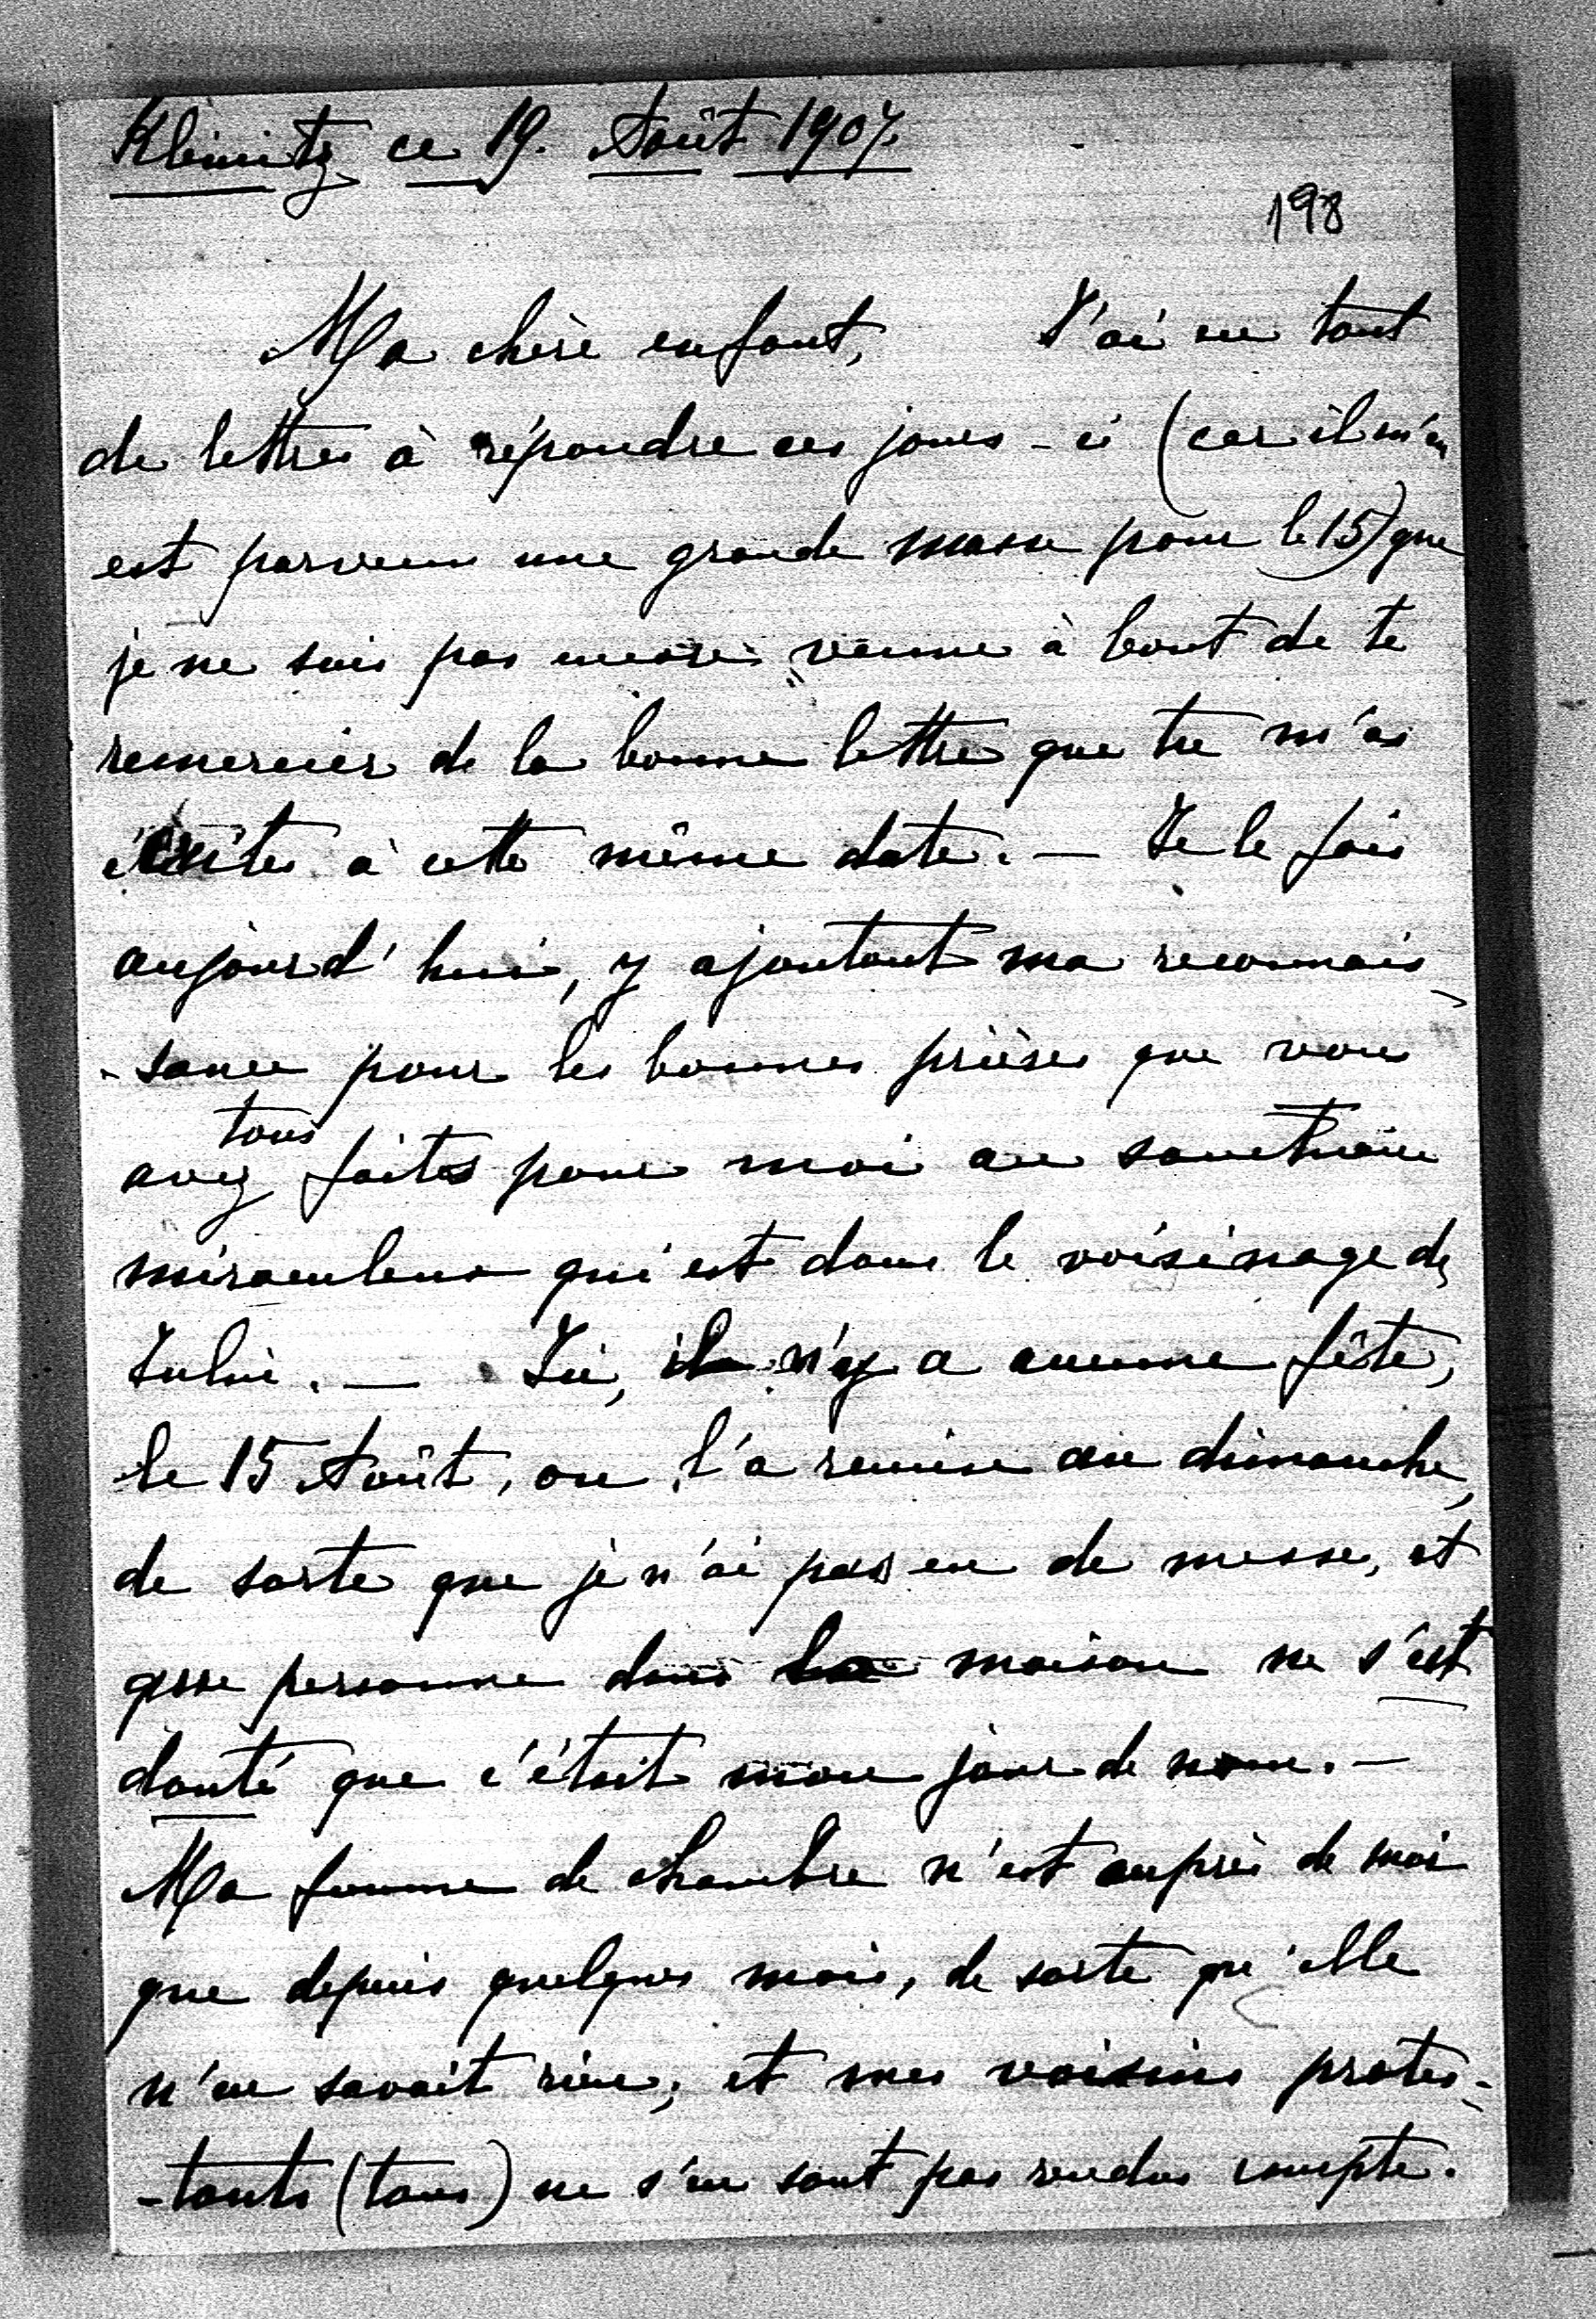 Klemitz ce 19. Août 1907.
198
Ma chère enfant, J'ai eu tant
de lettres à répondre ces jours-ci (car il m'en
est parvenu une grande masse pour le 15) que
je ne suis pas encore venue à bout de te
remercier de la bonne lettre que tu m'as
écrite à cette même date. — Je le fais
aujourd'hui, y ajoutant ma reconnais-
-sance pour les bonnes prières que vous
tous
avez faites pour moi au sanctuaire
miraculeux qui est dans le voisinage de
. — Ici, il n'y a aucune fête,
le 15 Août, on l'a remise au dimanche,
de sorte que je n'ai pas eu de messe, et
que personne dans la maison ne s'est
douté que c'était mon jour de nom. —
Ma femme de chambre n'est auprès de moi
que depuis quelques mois, de sorte qu'elle
n'en savait rien, et mes voisins protes-
-tants (tous) ne s'en sont pas rendus compte.